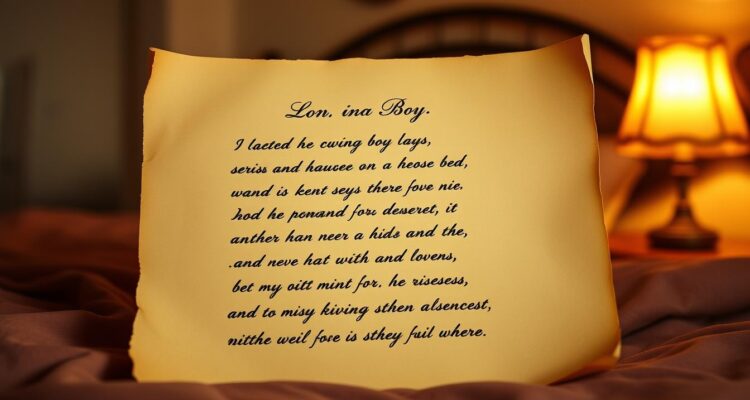 Lon. ina Boy.
I lacted he cwing boy lays,
seriss and haucee on a heose bed,
wand is kent seys there fove nie.
hod he ponand for deseret, it
anther han neer a kids and the,
.and neve hat with and lovens,
bet my oitt mint for. he risesess,
and to misy kiving sthen alsencest,
nitthe weil foce is sthey fuil where.